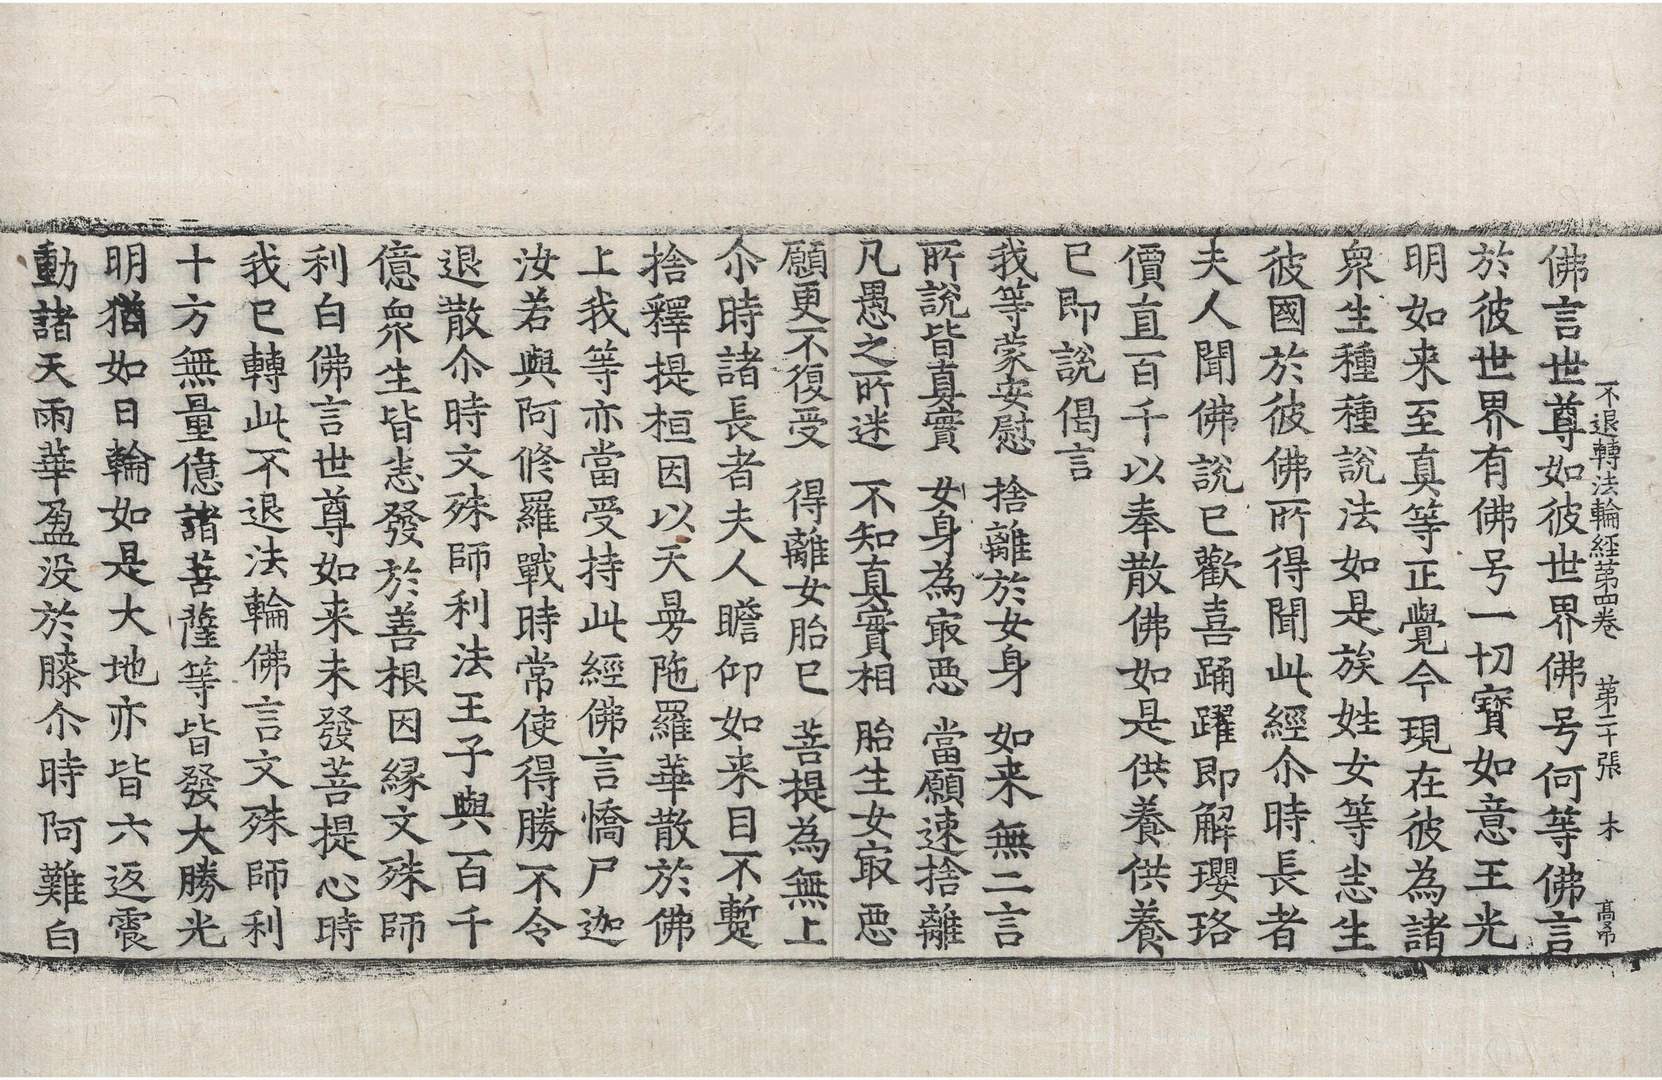 不退轉法輪經第四卷 第二十張 木 高孚
佛言世尊如彼世界佛号何等佛言
於彼世界有佛号一切寶如意王光
明如来至真等正覺今現在彼為諸
衆生種種說法如是族姓女等恚生
彼國於彼佛所得聞此經尒時長者
夫人聞佛說已歡喜踊躍即解瓔珞
價直百千以奉散佛如是供養供養
已即說偈言
我等蒙安慰 捨離於女身 如来無二言
所說皆真實 女身為冣惡 當願速捨離
凡愚之所迷 不知真實相 胎生女冣惡
願更不復受 得離女胎已 菩提為無上
尒時諸長者夫人瞻仰如来目不蹔
捨釋提桓因以天曼陁羅華散於佛
上我等亦當受持此經佛言憍尸迦
汝若與阿脩羅戰時常使得勝不令
退散尒時文殊師利法王子與百千
億衆生皆悉發於善根因縁文殊師
利白佛言世尊如来未發菩提心時
我已轉此不退法輪佛言文殊師利
十方無量億諸菩薩等皆發大勝光
明猶如日輪如是大地亦皆六返震
動諸天雨華盈没於膝尒時阿難白